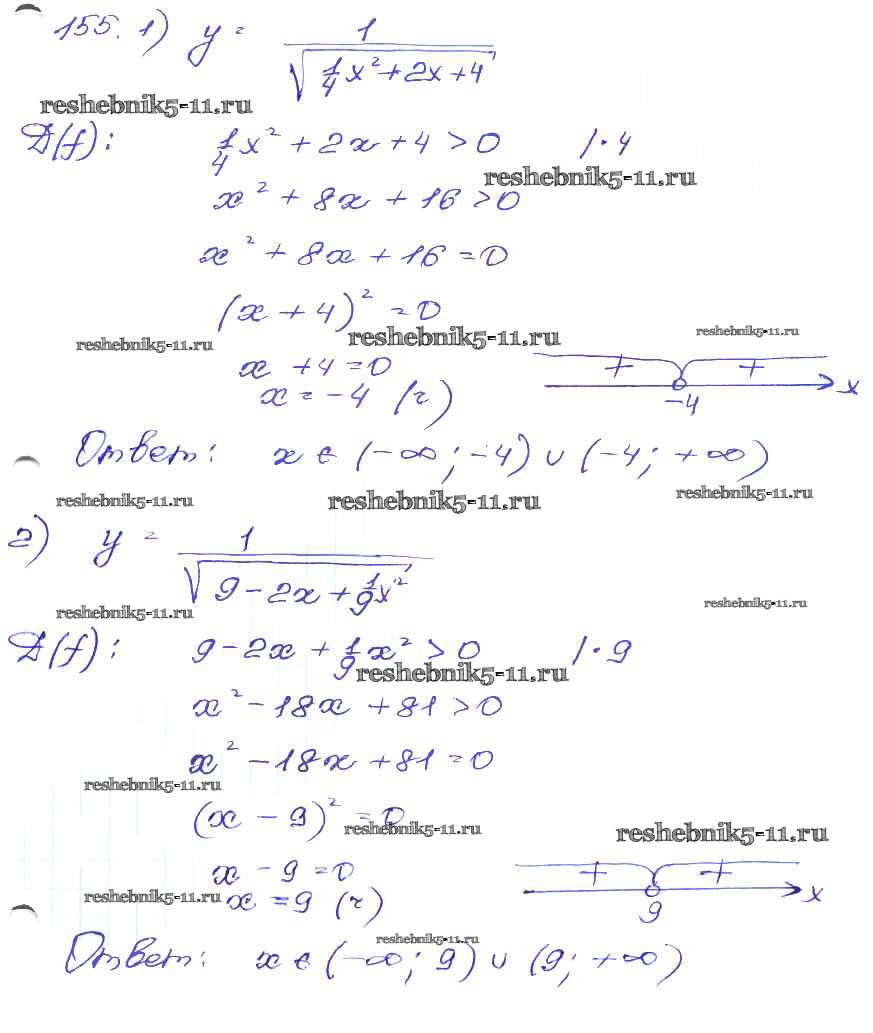 155. 1) y = 1 / √(1/4 x² + 2x + 4)
reshebnik5-11.ru
D(f): 1/4 x² + 2x + 4 > 0 / · 4
reshebnik5-11.ru
x² + 8x + 16 > 0
x² + 8x + 16 = 0
(x + 4)² = 0
reshebnik5-11.ru reshebnik5-11.ru reshebnik5-11.ru
x + 4 = 0 + + x
x = -4 (r) -4
Ответ: x ∈ (-∞; -4) ∪ (-4; +∞)
reshebnik5-11.ru reshebnik5-11.ru reshebnik5-11.ru
2) y = 1 / √(9 - 2x + 1/9 x²)
reshebnik5-11.ru reshebnik5-11.ru
D(f): 9 - 2x + 1/9 x² > 0 / · 9
reshebnik5-11.ru
x² - 18x + 81 > 0
x² - 18x + 81 = 0
reshebnik5-11.ru
(x - 9)² = 0
reshebnik5-11.ru reshebnik5-11.ru
x - 9 = 0 + + x
reshebnik5-11.ru x = 9 (r) 9
reshebnik5-11.ru
Ответ: x ∈ (-∞; 9) ∪ (9; +∞)